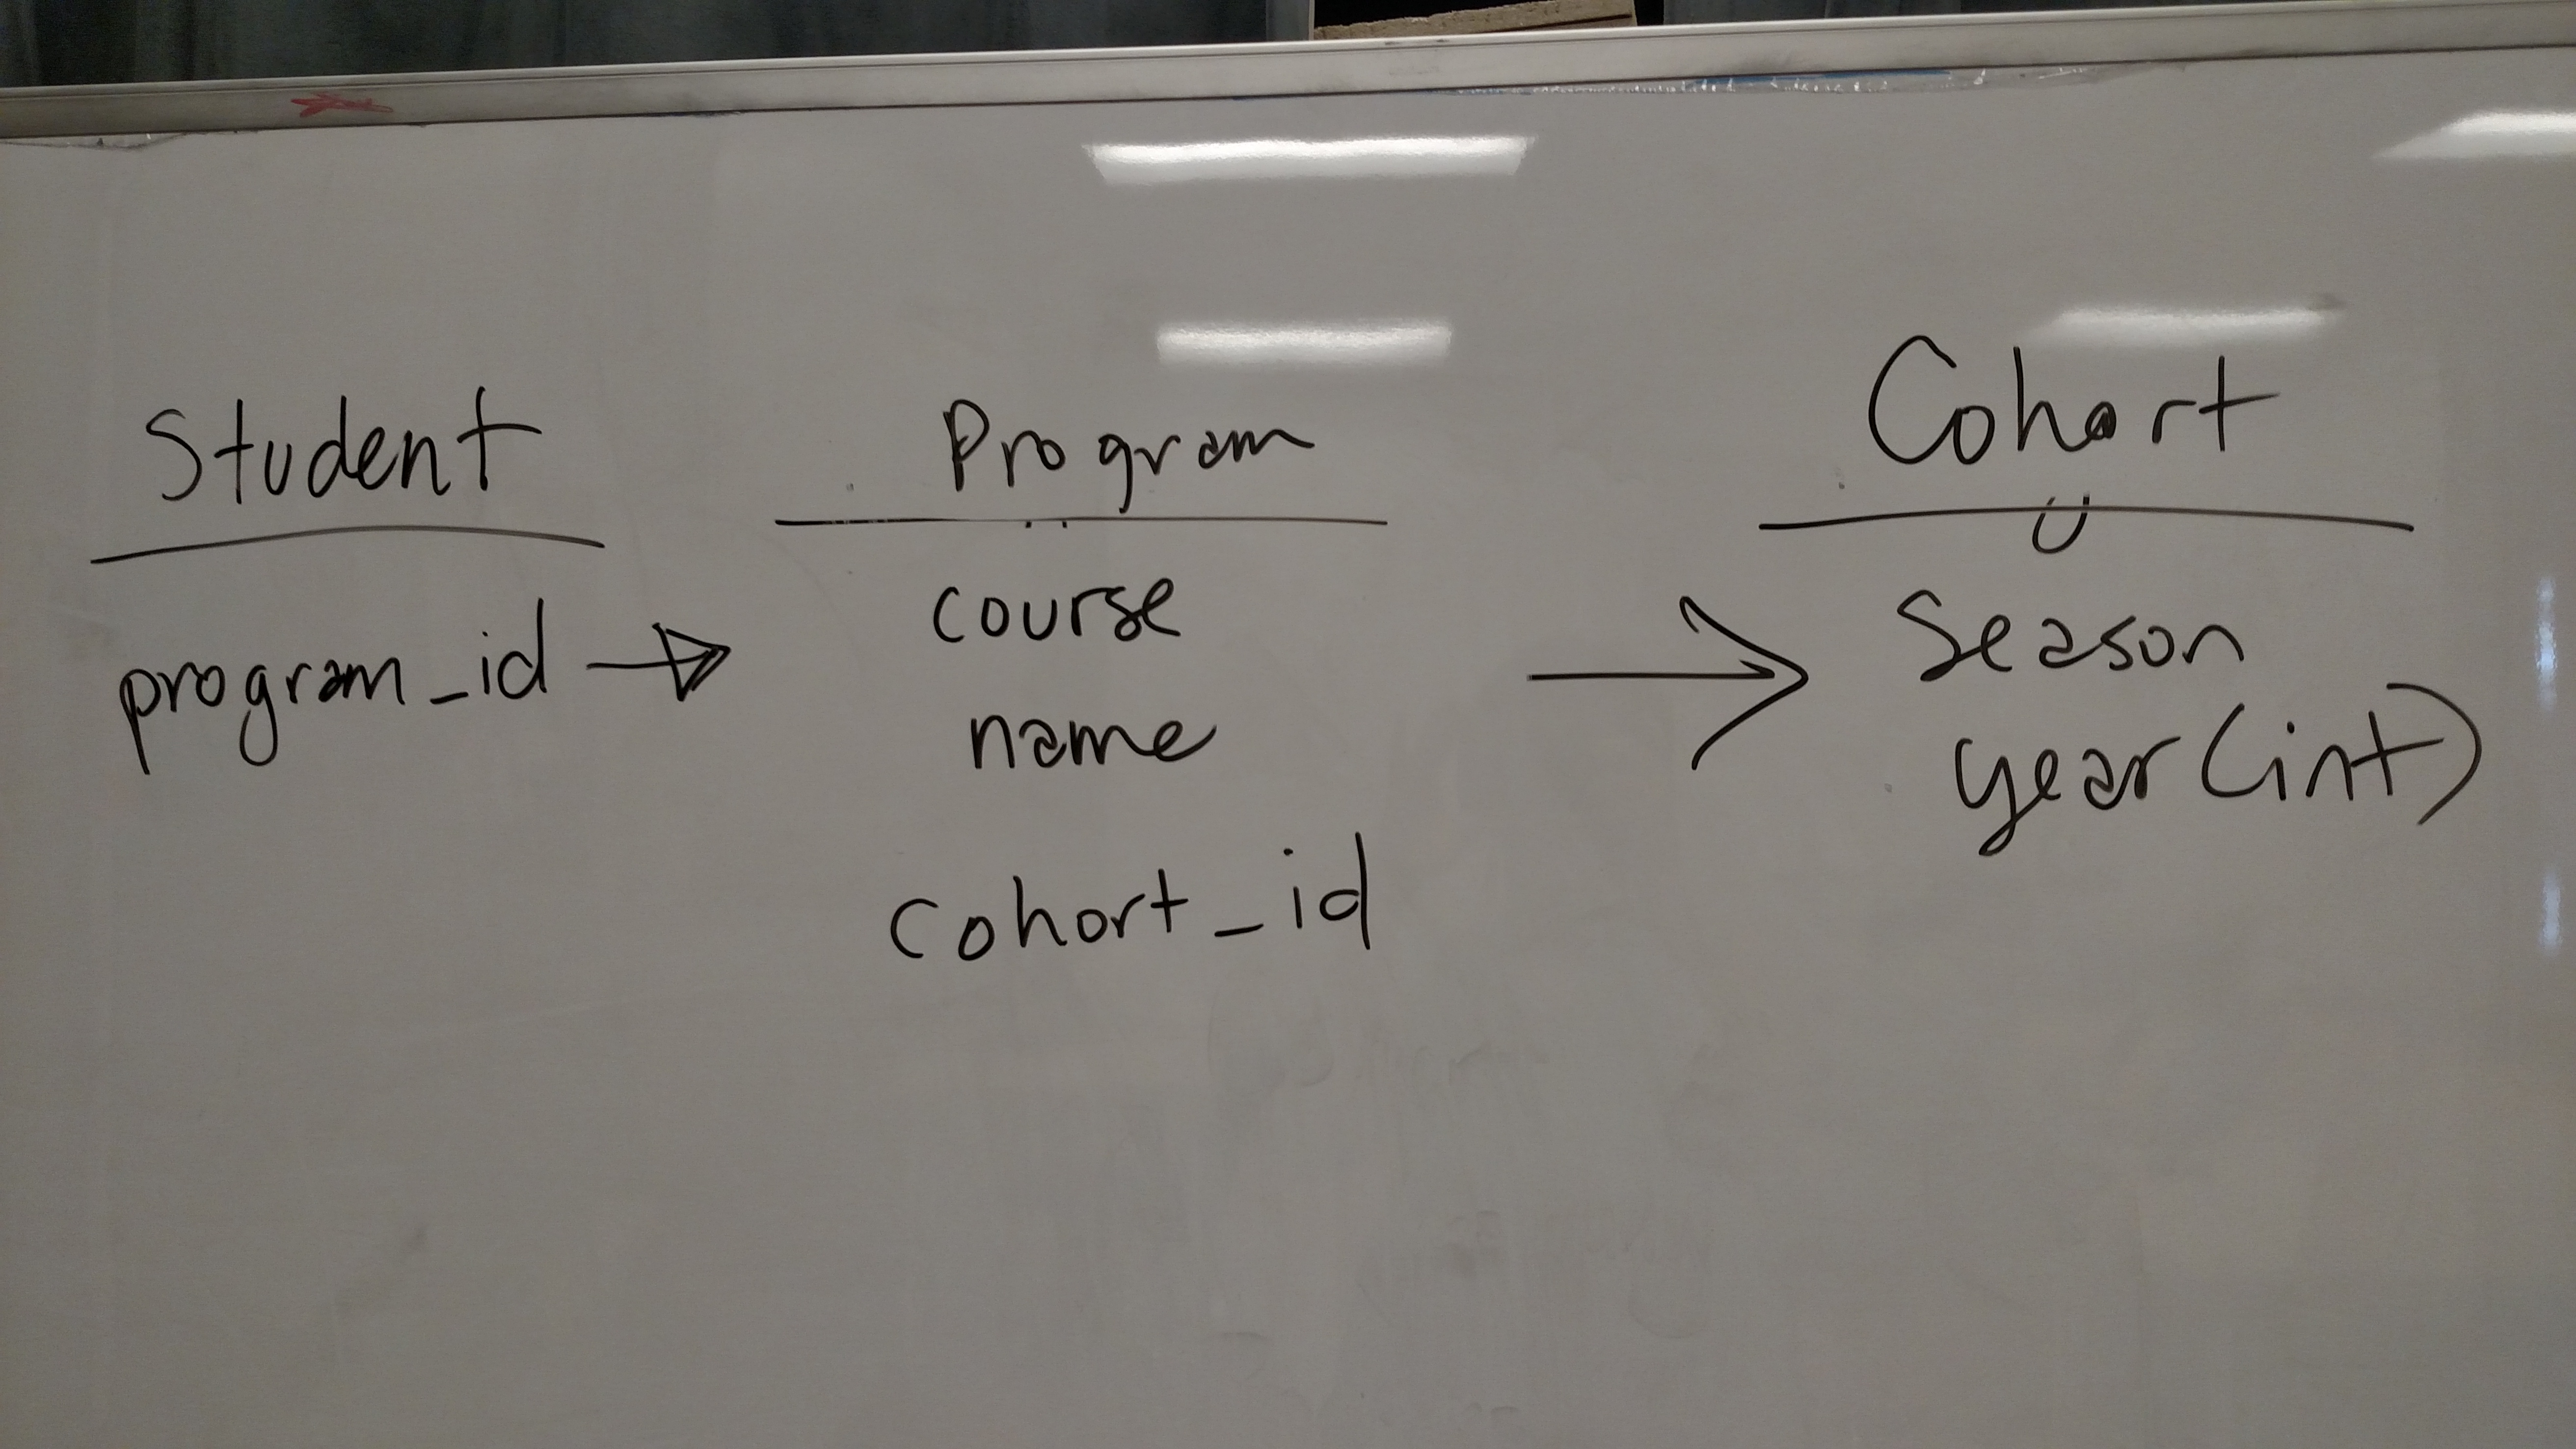 Student
program_id
Program
course
name
cohort_id
Cohort
Season
year (int)